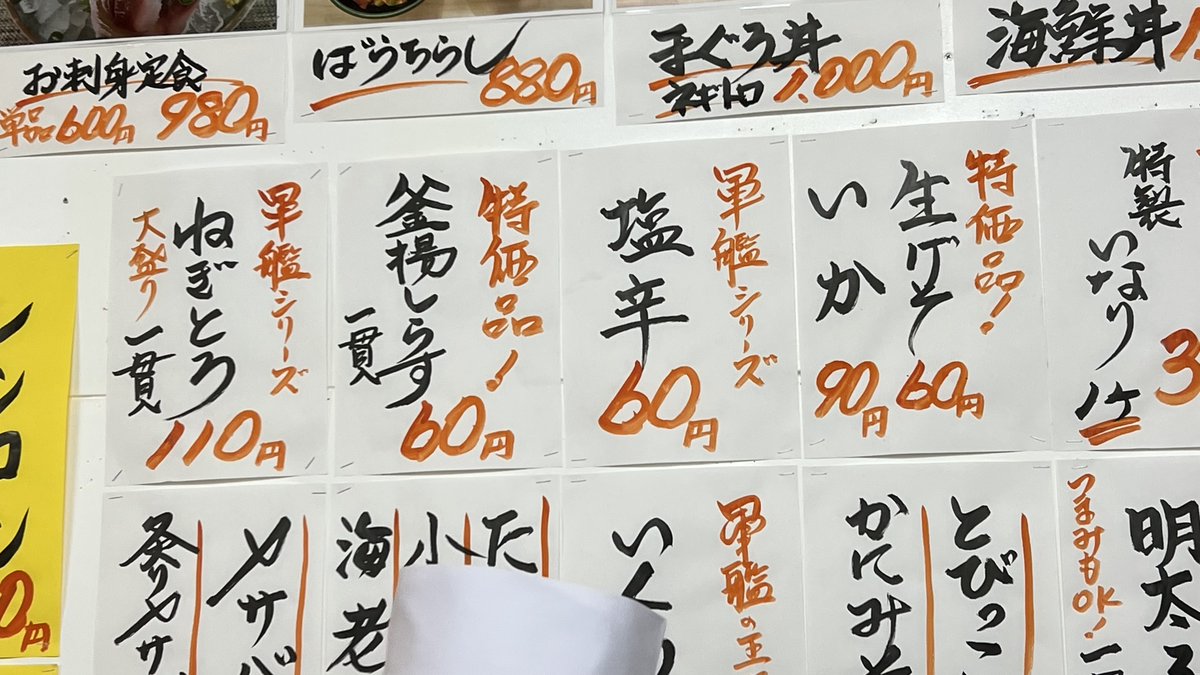 お刺身定食
単品600円 980円
ばらちらし
880円
まぐろ丼
ネギトロ 1,000円
海鮮丼
軍艦シリーズ
ねぎとろ
大盛り
一貫
110円
特価品!
釜揚しらす
一貫
60円
軍艦シリーズ
塩辛
60円
特価品!
生げそ
60円
いか
90円
特製
いなり
1ケ
3
円
〆サバ
炙り〆サ
た
小
海老
軍艦の王
いく
とびっこ
かにみそ
つまみもOK!
明太
一